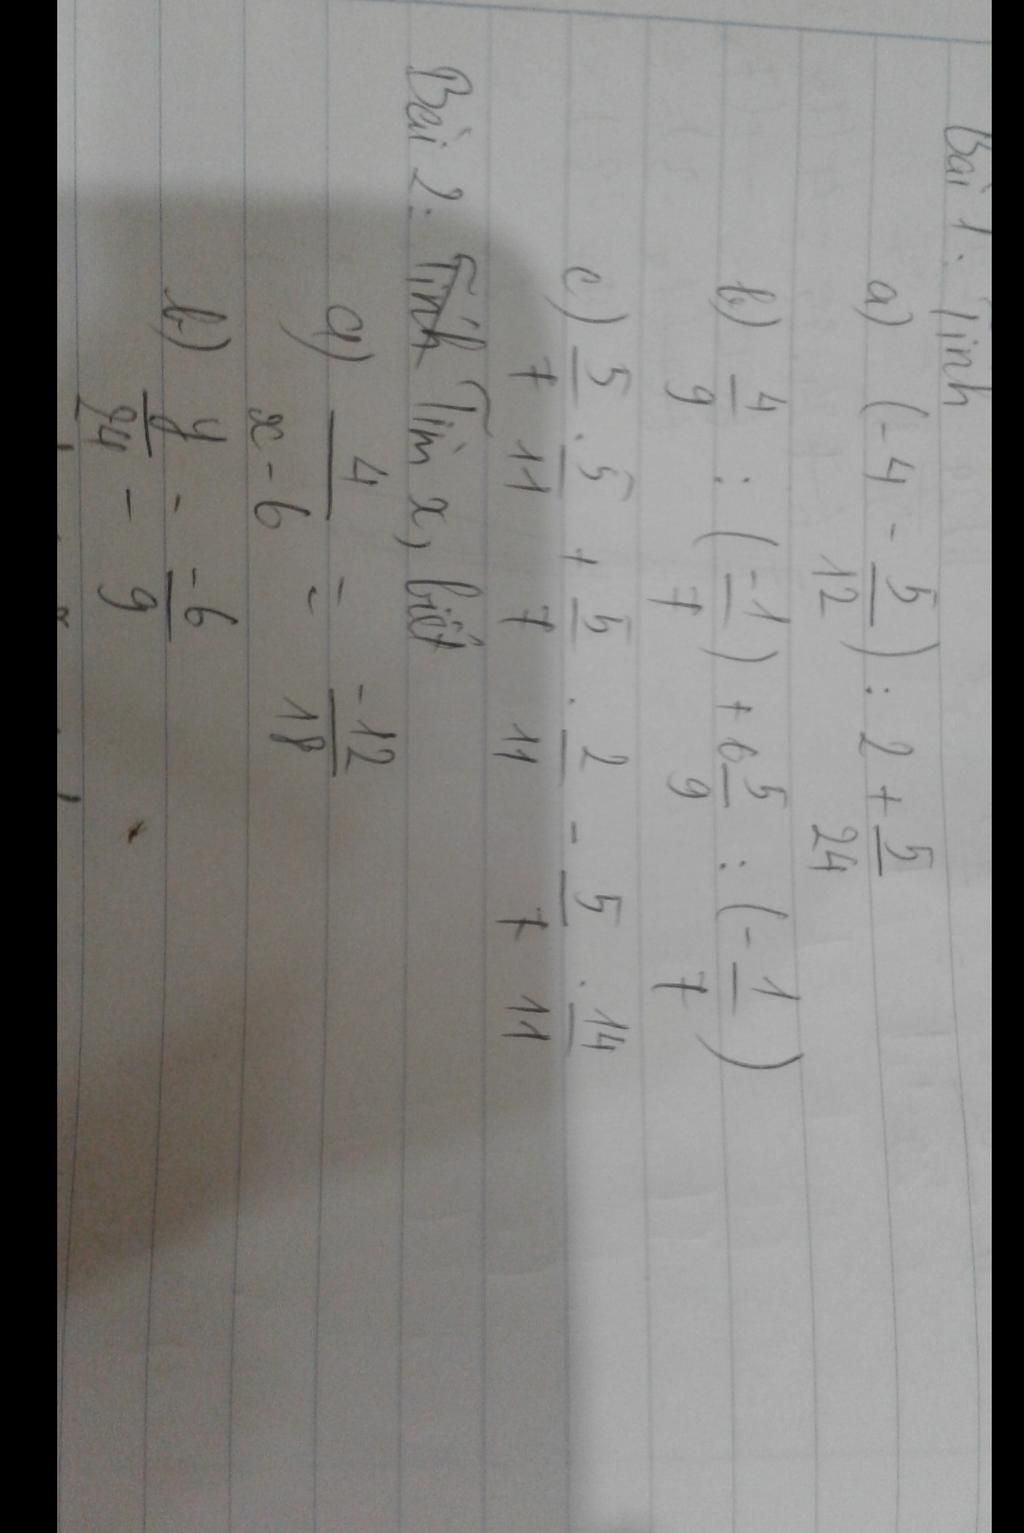 Bài 1: Tính
a) (-4 - 5/12) : 2 + 5/24
b) 4/9 : (-1/7) + 6 5/9 : (-1/7)
c) 5/7 . 5/11 + 5/7 . 2/11 - 5/7 . 14/11
Bài 2: Tính Tìm x, biết
a) 4/x-6 = -12/18
b) y/24 = -6/9